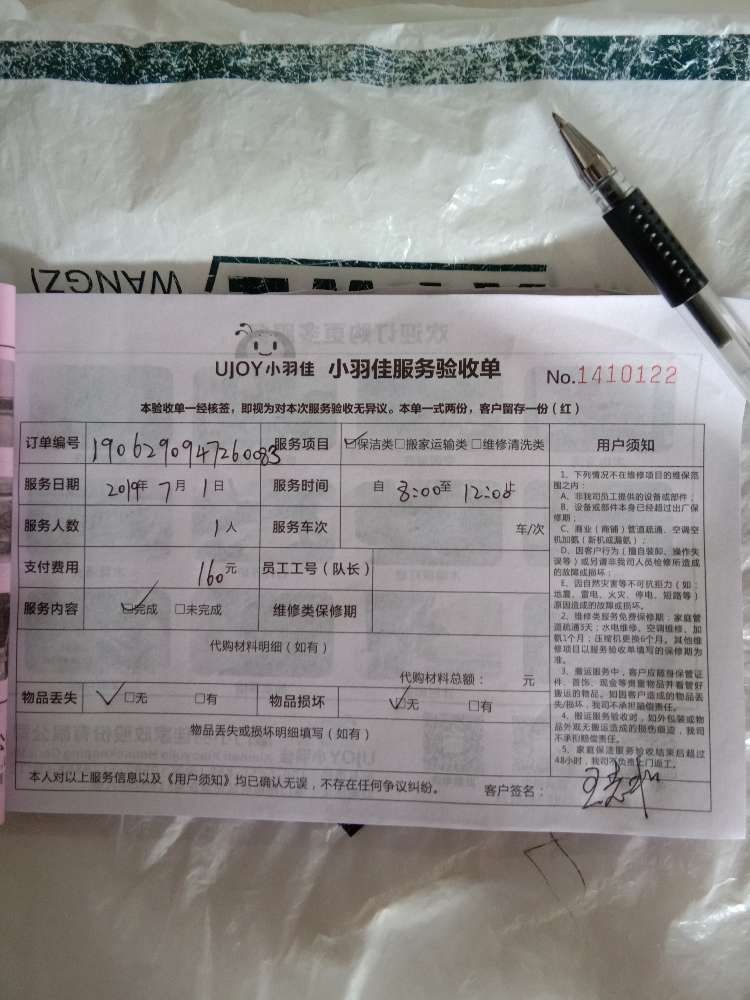 WANGZI
UJOY小羽佳 小羽佳服务验收单 No.1410122
本验收单一经核签，即视为对本次服务验收无异议。本单一式两份，客户留存一份（红）
订单编号 1906290947260083 服务项目 ☑保洁类□搬家运输类□维修清洗类
服务日期 2019年 7月 1日 服务时间 自 8:00至 12:00止
服务人数 1人 服务车次 车/次
支付费用 160元 员工工号（队长）
服务内容 ☑完成 □未完成 维修类保修期
代购材料明细（如有）
代购材料总额： 元
物品丢失 ☑无 □有 物品损坏 ☑无 □有
物品丢失或损坏明细填写（如有）
本人对以上服务信息以及《用户须知》均已确认无误，不存在任何争议纠纷。 客户签名：
用户须知
1、下列情况不在维修项目的维保范
围之内：
A、非我司员工提供的设备或部件；
B、设备或部件本身已经超过出厂保
修期；
C、商业（商铺）管道疏通、空调空
机加氨（新机或漏氨）；
D、因客户行为（擅自装卸、操作失
误等）或另请非我司人员检修所造成
的故障或损坏；
E、因自然灾害等不可抗拒力（如：
地震、雷电、火灾、停电、短路等）
原因造成的故障或损坏。
2、维修类服务免费保修期：家庭管
道疏通3天；水电维修、空调维修、加
氨1个月；压缩机更换6个月。其他维
修项目以服务验收单填写的保修期为
准。
3、搬运服务中，客户应随身保管证
件、首饰、现金等贵重物品并看管好
搬运的物品。如因客户造成的物品丢
失/损坏，我司不承担赔偿责任。
4、搬运服务验收时，如外包装或物
品外观无搬运造成的损伤痕迹，我司
不承担赔偿责任。
5、家庭保洁服务验收结束后超过
48小时，我司不负责上门返工。